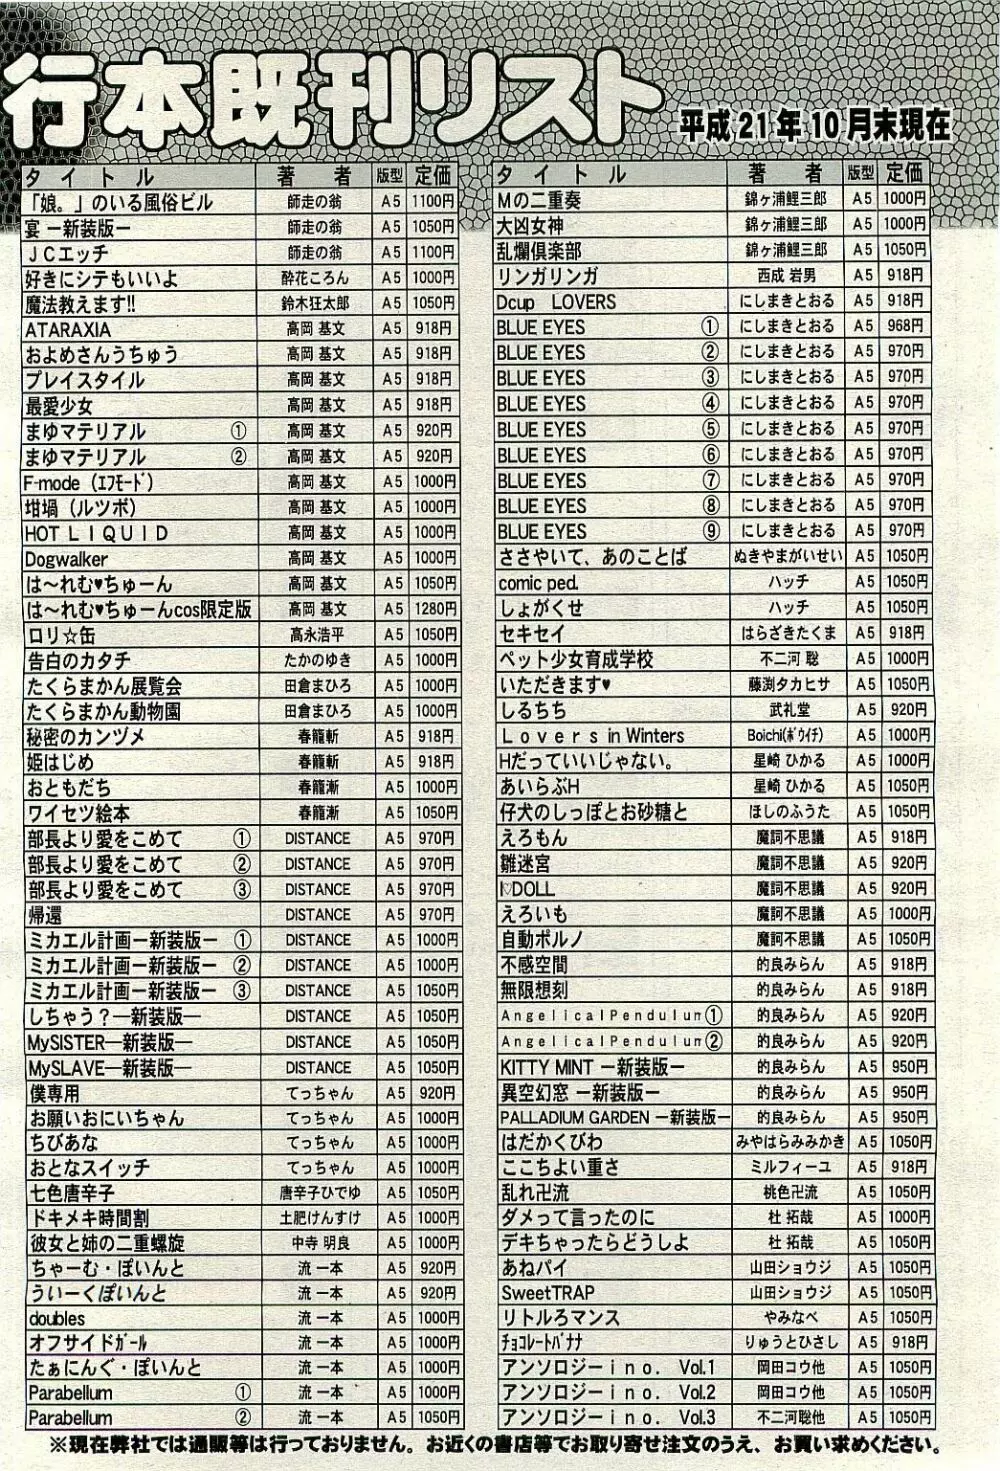 行本既刊リスト
平成21年10月末現在
タイトル 著者 版型 定価
「娘。」のいる風俗ビル 師走の翁 A5 1100円
宴 ー新装版ー 師走の翁 A5 1050円
JCエッチ 師走の翁 A5 1100円
好きにシテもいいよ 酔花ころん A5 1000円
魔法教えます!! 鈴木狂太郎 A5 1050円
ATARAXIA 高岡 基文 A5 918円
およめさんうちゅう 高岡 基文 A5 918円
プレイスタイル 高岡 基文 A5 918円
最愛少女 高岡 基文 A5 918円
まゆマテリアル ① 高岡 基文 A5 920円
まゆマテリアル ② 高岡 基文 A5 920円
F-mode（ｴﾌﾓｰﾄﾞ） 高岡 基文 A5 1000円
坩堝（ルツボ） 高岡 基文 A5 1000円
HOT LIQUID 高岡 基文 A5 1000円
Dogwalker 高岡 基文 A5 1000円
は〜れむ♥ちゅーん 高岡 基文 A5 1050円
は〜れむ♥ちゅーんcos限定版 高岡 基文 A5 1280円
ロリ☆缶 高永浩平 A5 1050円
告白のカタチ たかのゆき A5 1000円
たくらまかん展覧会 田倉まひろ A5 1000円
たくらまかん動物園 田倉まひろ A5 1000円
秘密のカンヅメ 春籠斬 A5 918円
姫はじめ 春籠斬 A5 918円
おともだち 春籠漸 A5 1000円
ワイセツ絵本 春籠漸 A5 1050円
部長より愛をこめて ① DISTANCE A5 970円
部長より愛をこめて ② DISTANCE A5 970円
部長より愛をこめて ③ DISTANCE A5 970円
帰還 DISTANCE A5 970円
ミカエル計画ー新装版ー ① DISTANCE A5 1000円
ミカエル計画ー新装版ー ② DISTANCE A5 1000円
ミカエル計画ー新装版ー ③ DISTANCE A5 1050円
しちゃう？―新装版― DISTANCE A5 1050円
MySISTER―新装版― DISTANCE A5 1050円
MySLAVE―新装版― DISTANCE A5 1050円
僕専用 てっちゃん A5 920円
お願いおにいちゃん てっちゃん A5 1000円
ちびあな てっちゃん A5 1000円
おとなスイッチ てっちゃん A5 1000円
七色唐辛子 唐辛子ひでゆ A5 1050円
ドキメキ時間割 土肥けんすけ A5 1000円
彼女と姉の二重螺旋 中寺 明良 A5 1000円
ちゃーむ・ぽいんと 流 一本 A5 920円
ういーくぽいんと 流 一本 A5 920円
doubles 流 一本 A5 1000円
オフサイドｶﾞｰﾙ 流 一本 A5 1000円
たぁにんぐ・ぽいんと 流 一本 A5 1000円
Parabellum ① 流 一本 A5 1000円
Parabellum ② 流 一本 A5 1050円
タイトル 著者 版型 定価
Mの二重奏 錦ヶ浦鯉三郎 A5 1000円
大凶女神 錦ヶ浦鯉三郎 A5 1000円
乱爛倶楽部 錦ヶ浦鯉三郎 A5 1050円
リンガリンガ 西成 岩男 A5 918円
Dcup LOVERS にしまきとおる A5 918円
BLUE EYES ① にしまきとおる A5 968円
BLUE EYES ② にしまきとおる A5 970円
BLUE EYES ③ にしまきとおる A5 970円
BLUE EYES ④ にしまきとおる A5 970円
BLUE EYES ⑤ にしまきとおる A5 970円
BLUE EYES ⑥ にしまきとおる A5 970円
BLUE EYES ⑦ にしまきとおる A5 970円
BLUE EYES ⑧ にしまきとおる A5 970円
BLUE EYES ⑨ にしまきとおる A5 970円
ささやいて、あのことば ぬきやまがいせい A5 1050円
comic ped. ハッチ A5 1050円
しょがくせ ハッチ A5 1050円
セキセイ はらざきたくま A5 918円
ペット少女育成学校 不二河 聡 A5 1000円
いただきます♥ 藤渕タカヒサ A5 1050円
しるちち 武礼堂 A5 920円
Lovers in Winters Boichi(ﾎﾞｳｲﾁ) A5 1000円
Hだっていいじゃない。 星崎 ひかる A5 1000円
あいらぶH 星崎 ひかる A5 1050円
仔犬のしっぽとお砂糖と ほしのふうた A5 1050円
えろもん 魔訶不思議 A5 918円
雛迷宮 魔訶不思議 A5 920円
I♡DOLL 魔訶不思議 A5 920円
えろいも 魔訶不思議 A5 1000円
自動ポルノ 魔訶不思議 A5 1050円
不感空間 的良みらん A5 918円
無限想刻 的良みらん A5 918円
AngelicalPendulum① 的良みらん A5 920円
AngelicalPendulum② 的良みらん A5 920円
KITTY MINT ー新装版ー 的良みらん A5 950円
異空幻窓 ー新装版ー 的良みらん A5 950円
PALLADIUM GARDEN ー新装版ー 的良みらん A5 950円
はだかくびわ みやはらみみかき A5 1050円
ここちよい重さ ミルフィーユ A5 918円
乱れ卍流 桃色卍流 A5 1050円
ダメって言ったのに 杜 拓哉 A5 1000円
デキちゃったらどうしよ 杜 拓哉 A5 1050円
あねパイ 山田ショウジ A5 1050円
SweetTRAP 山田ショウジ A5 1050円
リトルろマンス やみなべ A5 1050円
ﾁｮｺﾚｰﾄﾊﾞﾅﾅ りゅうとひさし A5 918円
アンソロジーino. Vol.1 岡田コウ他 A5 1050円
アンソロジーino. Vol.2 岡田コウ他 A5 1050円
アンソロジーino. Vol.3 不二河聡他 A5 1050円
※現在弊社では通販等は行っておりません。お近くの書店等でお取り寄せ注文のうえ、お買い求めください。